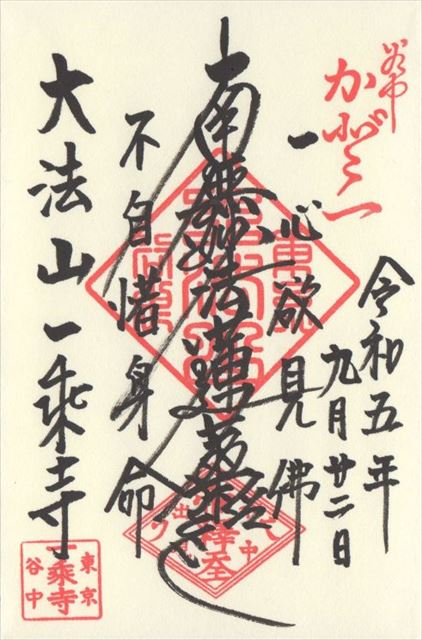 谷中
令和五年
九月廿二日
一心欲見佛
南無妙法蓮華経
不自惜身命
大法山一乗寺
東京
一乗寺
谷中